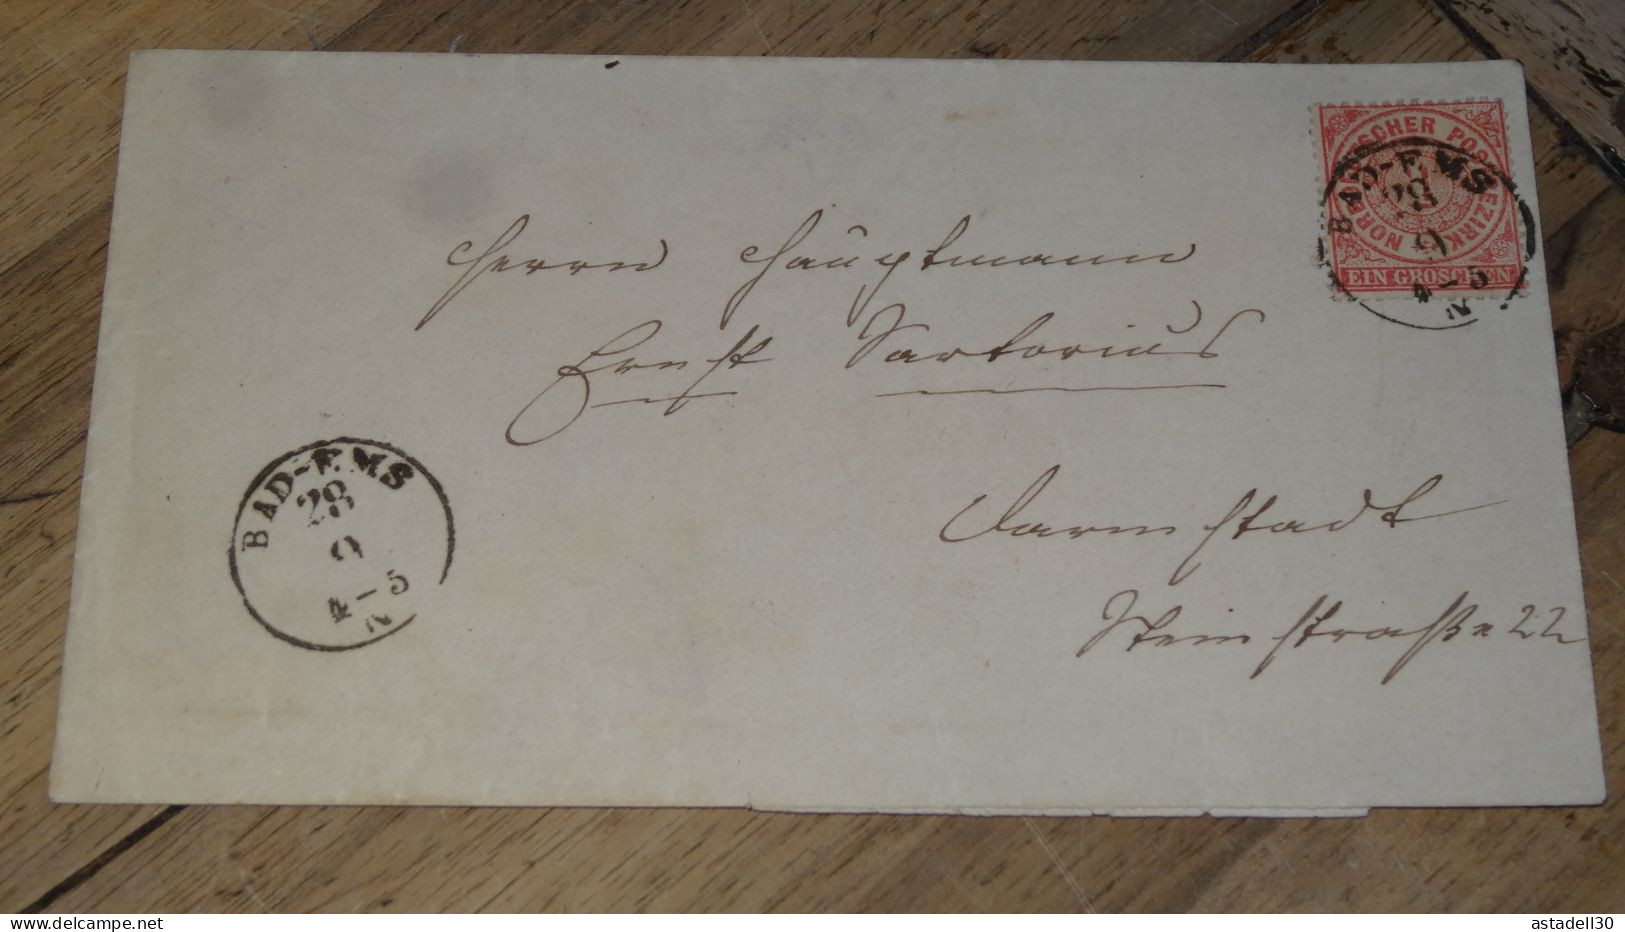 NORDDEUTSCHER POSTBEZIRK
1
EIN GROSCHEN
BAD-EMS
28
9
4-5
N
Herrn Hauptmann
Ernst Sartorius
Darmstadt
Steinstraße 22
BAD-EMS
28
9
4-5
N
delcampe.net
astadell30